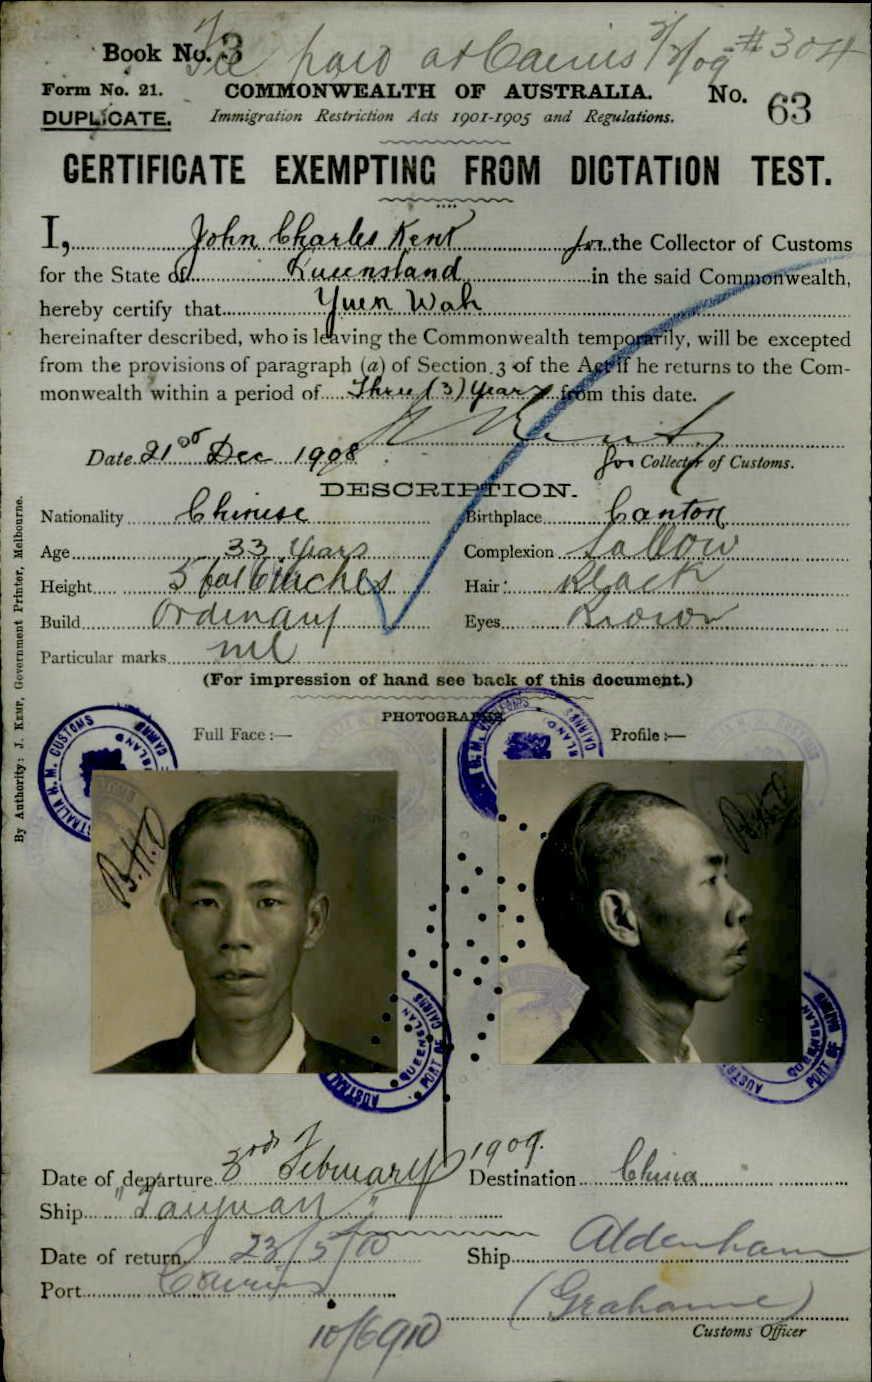 Book No. 3
Fee paid at Cairns 3/2/09 #304
Form No. 21. COMMONWEALTH OF AUSTRALIA. No. 63
DUPLICATE. Immigration Restriction Acts 1901-1905 and Regulations.
CERTIFICATE EXEMPTING FROM DICTATION TEST.
I, John Charles Kent for the Collector of Customs
for the State of Queensland in the said Commonwealth,
hereby certify that Yuen Wah
hereinafter described, who is leaving the Commonwealth temporarily, will be excepted
from the provisions of paragraph (a) of Section 3 of the Act if he returns to the Com-
monwealth within a period of Three (3) Years from this date.
Kent
Date 21st Dec 1908 for Collector of Customs.
DESCRIPTION.
Nationality Chinese Birthplace Canton
Age 33 Years Complexion Sallow
Height 5 feet 6 inches Hair Black
Build Ordinary Eyes Brown
Particular marks nil
(For impression of hand see back of this document.)
PHOTOGRAPHS
Full Face :— Profile :—
B.H.O
B.H.O
AUSTRALIA H.M. CUSTOMS
PORT OF CAIRNS
QUEENSLAND
Date of departure 3rd February 1909. Destination China
Ship "Taiyuan"
Date of return 23/5/10 Ship Aldenham
Port Cairns (Grahame)
10/6/910 Customs Officer
By Authority: J. KEMP, Government Printer, Melbourne.